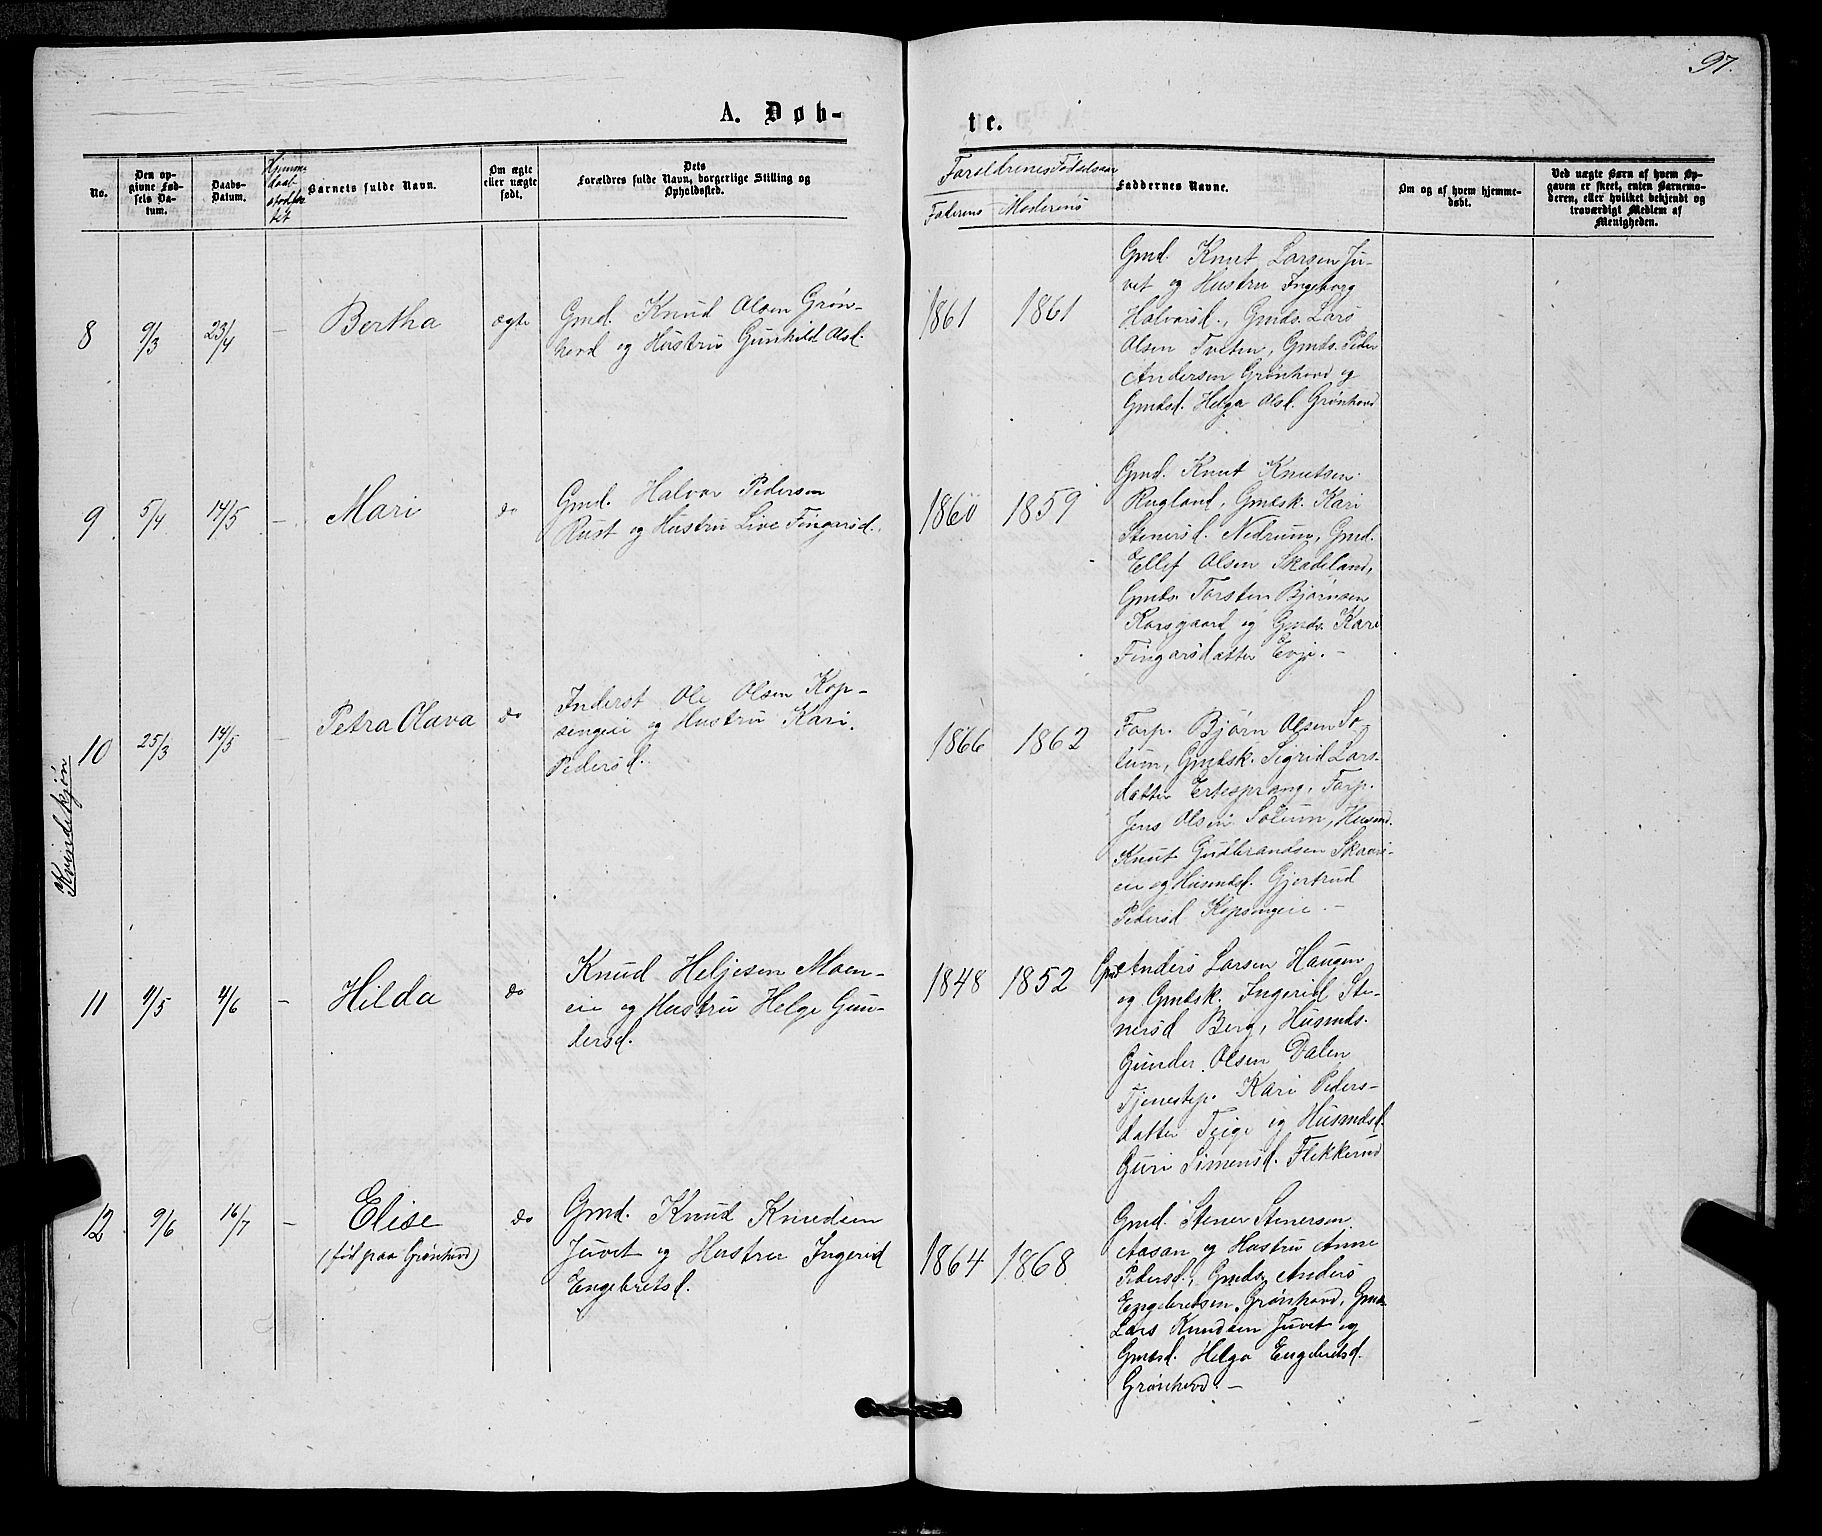 97.
A. Døb-
te.
No.
Den op-
givne Fød-
sels Da-
tum.
Daabs-
Datum.
Hjemme-
daab
Barnets fulde Navn.
Om ægte
eller uægte
født.
Dets
Forældres fulde Navn, borgerlige Stilling og
Opholdssted.
Forældrenes Fødselsaar
Faderens Moderens
Faddernes Navne.
Om og af hvem hjemme-
døbt.
Ved uægte Børn af hvem Op-
gaven er skeet, enten Barnemo-
deren, eller hvilket bekjendt og
troværdigt Medlem af
Menigheden.
Kvindekjøn
8 9/3 23/4 – Bertha ægte
Gmd. Knud Olsen Grøn-
hovd og Hustru Gunhild Olsd.
1861 1861
Gmd. Knut Larsen Ju-
vet og Hustru Ingeborg
Halvorsd., Gmds. Lars
Olsen Tveten, Gmds. Peder
Andersen Grønhovd og
Gmdsd. Helga Olsd. Grønhovd
9 5/4 14/5 – Mari do
Gmd. Halvor Pedersen
Rust og Hustru Live Fingarsd.
1860 1859
Gmd. Knut Knutsen
Rugland, Gmdsk. Kari
Stenersd. Nedrum, Gmd.
Ellef Olsen Skadeland,
Gmds. Torsten Bjørnsen
Korsgaard og Gmds. Kari
Fingarsdatter Evje. –
10 25/3 14/5 – Petra Olava do
Inderst Ole Olsen Kop-
sengeie og Hustru Kari
Pedersd.
1866 1862
Forp. Bjørn Olsen So-
lum, Gmdsk. Sigrid Lars-
datter Ertesprang, Forp.
Jens Olsen Solum, Husmd.
Knut Gudbrandsen Skaar-
eie og Husmdsd. Gjertrud
Pedersd Kopsengeie. –
11 4/5 4/6 – Hilda do
Knud Heljesen Moen-
eie og Hustru Helge Gun-
dersd.
1848 1852
Gmd Anders Larsen Haugen
og Gmdsk. Ingerid Ste-
nersd Berg, Husmds.
Gunder Olsen Dalen
Tjenestep. Kari Peders-
datter Teige og Husmdsd.
Guri Simensd. Flekkerud
12 9/6 16/7 – Elise do
(født paa Grønhovd)
Gmd. Knud Knudsen
Juvet og Hustru Ingerid
Engebretsd.
1864 1868
Gmd. Stener Stenersen
Aasan og Hustru Anne
Pedersd., Gmds. Anders
Engebretsen Grønhovd, Gmds
Lars Knudsen Juvet og
Gmdsd. Helga Engebretsd.
Grønhovd. –